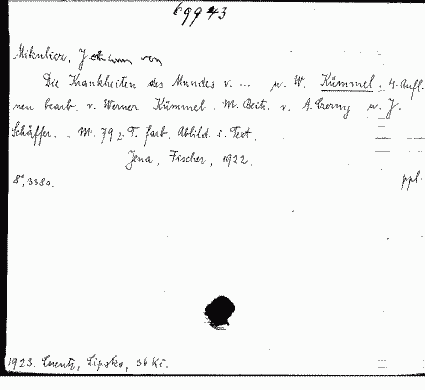 69943
Mikulicz, Johann von
Die Krankheiten des Mundes v. ... u. W. Kümmel. 4. Aufl.
neu bearb. v. Werner Kümmel. M. Beitr. v. A. Czerny u. J.
Schäffer. M. 79 z. T. farb. Abbild. i. Text.
Jena, Fischer, 1922.
8°, 338 s. ppl.
1923. Lipsko, 36 Kč.